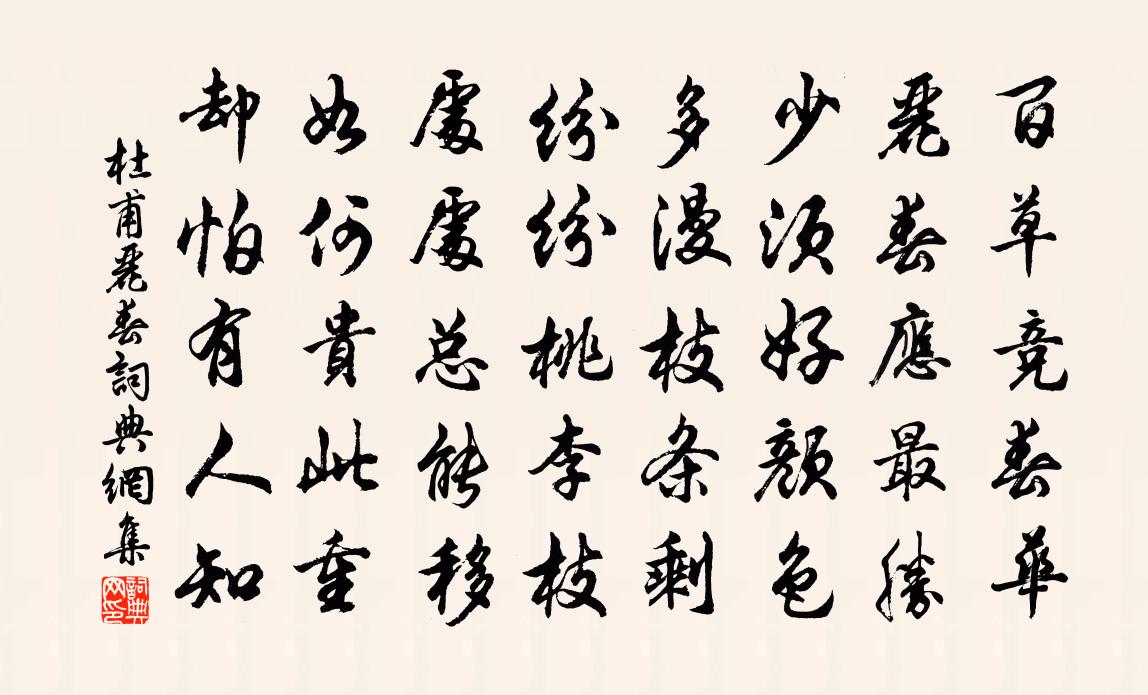 百草竞春華
麗春應最勝
少須好顔色
多漫枝条剩
紛紛桃李枝
處處总能移
如何貴此重
却怕有人知
杜甫麗春詞典網集
詞典网印